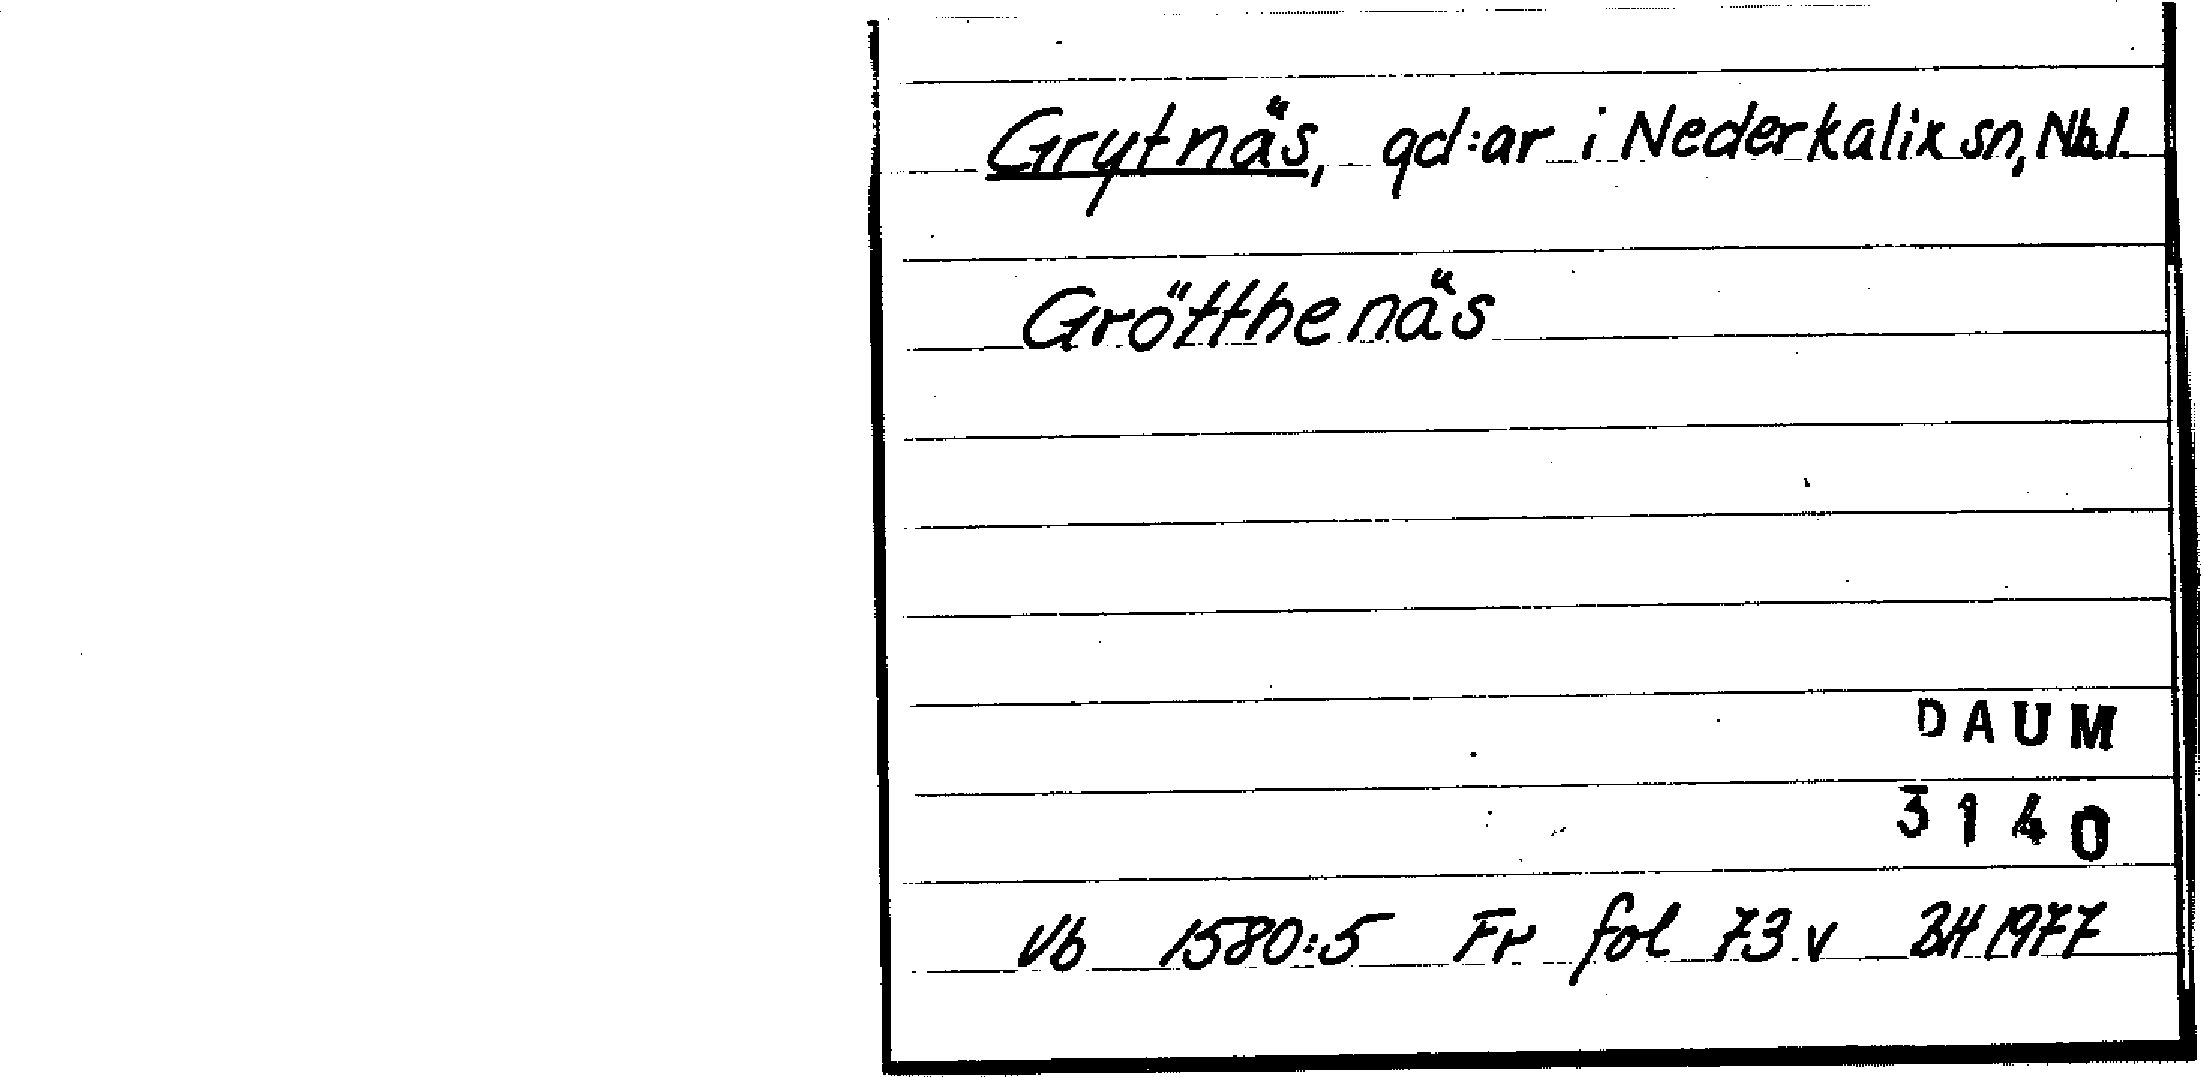 Grytnäs, gd:ar i Nederkalix sn, Nb.l.
Grötthenäs
DAUM
3140
Vb 1580:5 Fr fol 73 v BH 1977